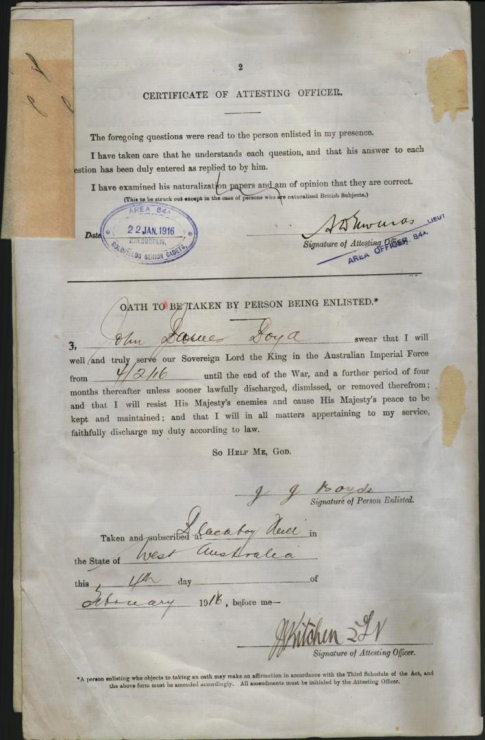 2
CERTIFICATE OF ATTESTING OFFICER.
The foregoing questions were read to the person enlisted in my presence.
I have taken care that he understands each question, and that his answer to each
estion has been duly entered as replied to by him.
I have examined his naturalization papers and am of opinion that they are correct.
(This to be struck out except in the case of persons who are naturalized British Subjects.)
AREA 84A
Date 22 JAN. 1916
SENIOR CADETS
Signature of Attesting Officer.
LIEUT
AREA OFFICER 84A.
OATH TO BE TAKEN BY PERSON BEING ENLISTED.*
3. John James Boyd swear that I will
well and truly serve our Sovereign Lord the King in the Australian Imperial Force
from 4/2/16 until the end of the War, and a further period of four
months thereafter unless sooner lawfully discharged, dismissed, or removed therefrom;
and that I will resist His Majesty's enemies and cause His Majesty's peace to be
kept and maintained; and that I will in all matters appertaining to my service,
faithfully discharge my duty according to law.
SO HELP ME, GOD.
J J Boyd
Signature of Person Enlisted.
Taken and subscribed at Blackboy Hill in
the State of West Australia
this 4th day of
February 1916, before me—
Kitchen
Signature of Attesting Officer.
*A person enlisting who objects to taking an oath may make an affirmation in accordance with the Third Schedule of the Act, and
the above form must be amended accordingly. All amendments must be initialed by the Attesting Officer.